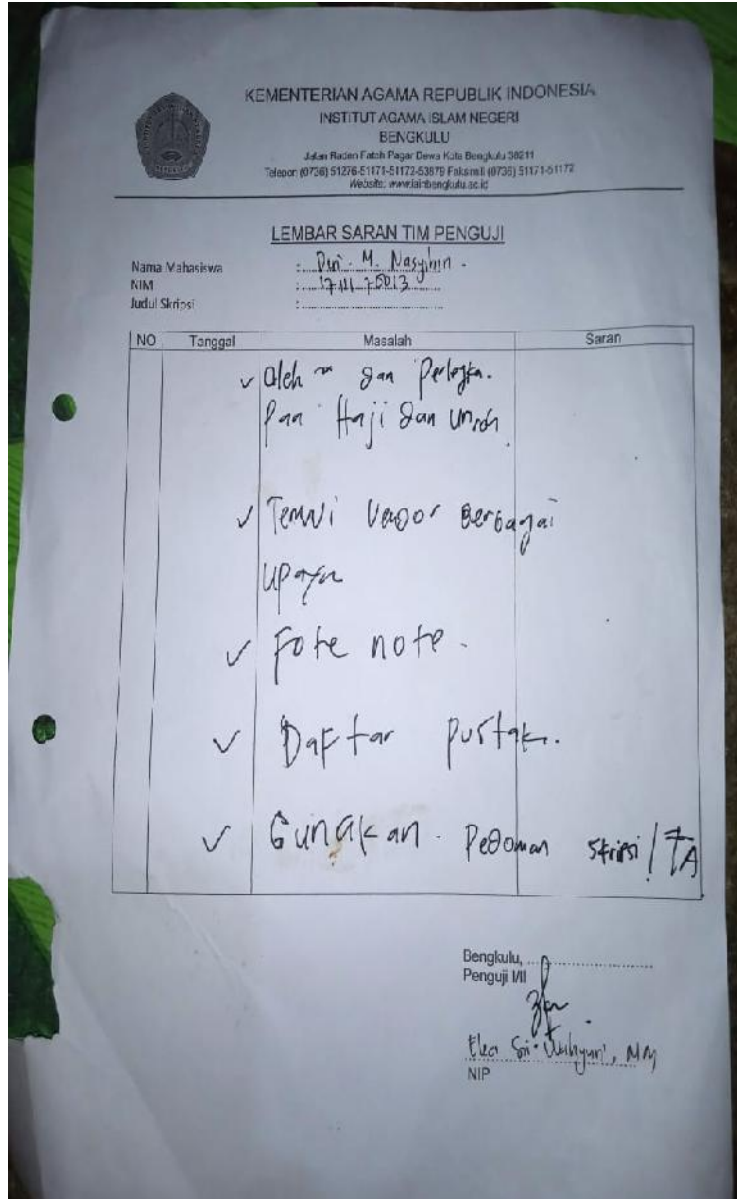 KEMENTERIAN AGAMA REPUBLIK INDONESIA
INSTITUT AGAMA ISLAM NEGERI
BENGKULU
Jalan Raden Fatah Pagar Dewa Kota Bengkulu 38211
Telepon (0736) 51276-51171-51172-53879 Faksimili (0736) 51171-51172
Website: www.iainbengkulu.ac.id
LEMBAR SARAN TIM PENGUJI
Nama Mahasiswa : M. Nasyihin
NIM :
Judul Skripsi :
NO Tanggal Masalah Saran
✓ Oleh" dan
Haji dan
✓ Temui Berbagai
upaya
✓ Fote note.
✓ Daftar pustak.
✓ Gunakan. Pedoman Skripsi / TA
Bengkulu,
Penguji I/II
Sri, MM
NIP